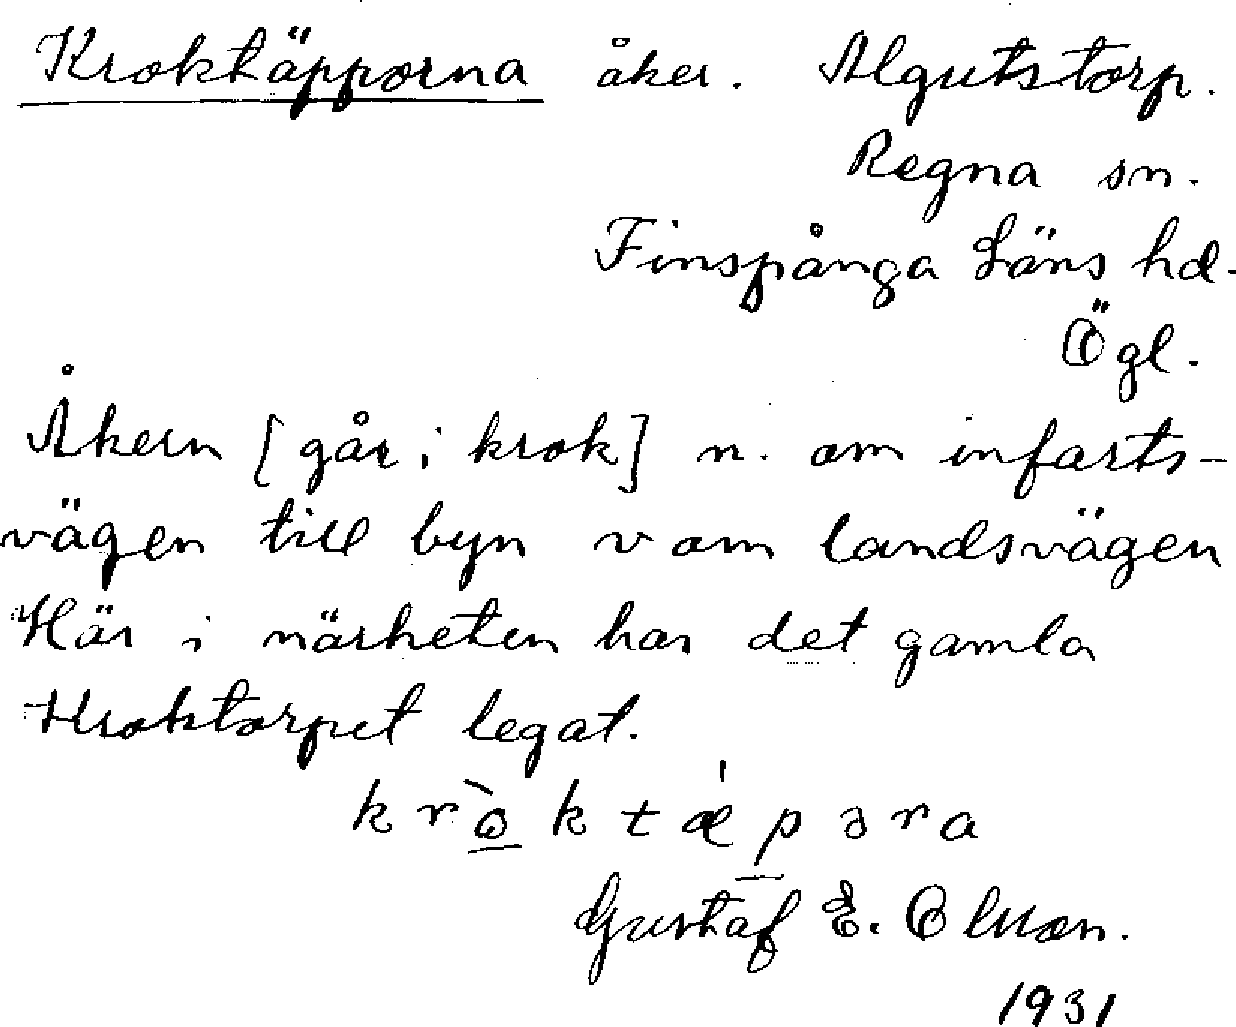 Kroktäpporna åker. Algutstorp.
Regna sn.
Finspånga Läns hd.
Ögl.
Åkern [går i krok] n. om infarts-
vägen till byn v om landsvägen
Här i närheten har det gamla
Kroktorpet legat.
krò̲ktǽp̲əra
Gustaf E. Olsson.
1931